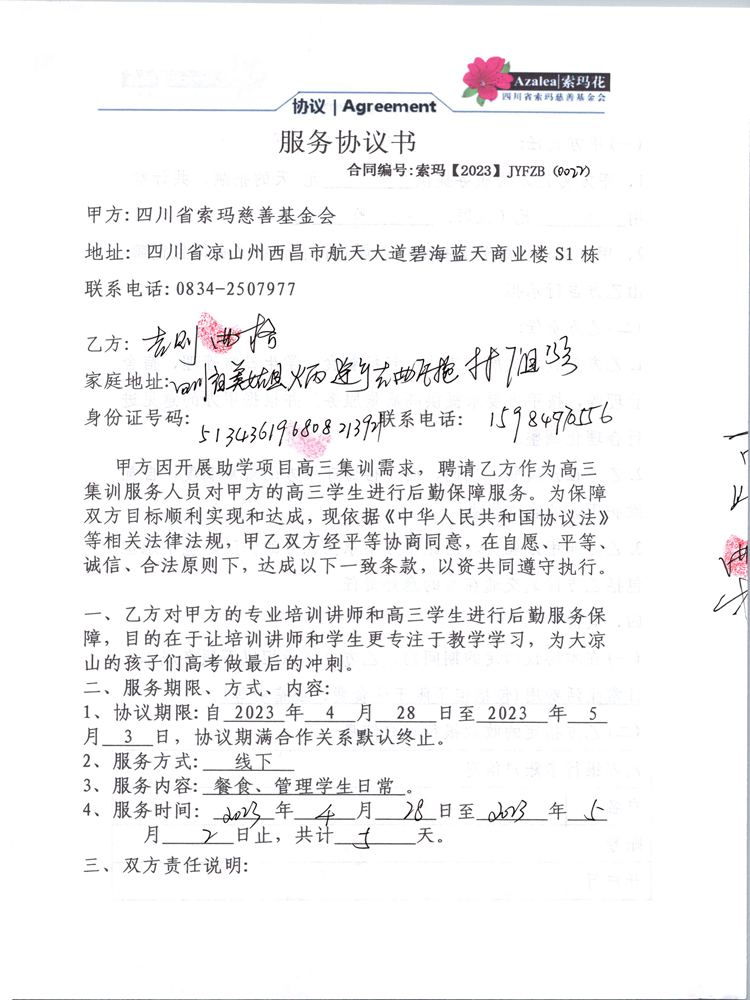 Azalea|索玛花
四川省索玛慈善基金会
协议 | Agreement
服务协议书
合同编号:索玛【2023】JYFZB (0027)
甲方: 四川省索玛慈善基金会
地址: 四川省凉山州西昌市航天大道碧海蓝天商业楼 S1 栋
联系电话: 0834-2507977
乙方: 吉则 曲
家庭地址: 四川省美姑县 村
身份证号码: 联系电话:
甲方因开展助学项目高三集训需求，聘请乙方作为高三
集训服务人员对甲方的高三学生进行后勤保障服务。为保障
双方目标顺利实现和达成，现依据《中华人民共和国协议法》
等相关法律法规，甲乙双方经平等协商同意，在自愿、平等、
诚信、合法原则下，达成以下一致条款，以资共同遵守执行。
一、乙方对甲方的专业培训讲师和高三学生进行后勤服务保
障，目的在于让培训讲师和学生更专注于教学学习，为大凉
山的孩子们高考做最后的冲刺。
二、服务期限、方式、内容:
1、协议期限: 自 2023 年 4 月 28 日至 2023 年 5
月 3 日，协议期满合作关系默认终止。
2、服务方式: 线下
3、服务内容: 餐食、管理学生日常 。
4、服务时间: 2023 年 4 月 28 日至 2023 年 5
月 2 日止，共计 5 天。
三、双方责任说明: